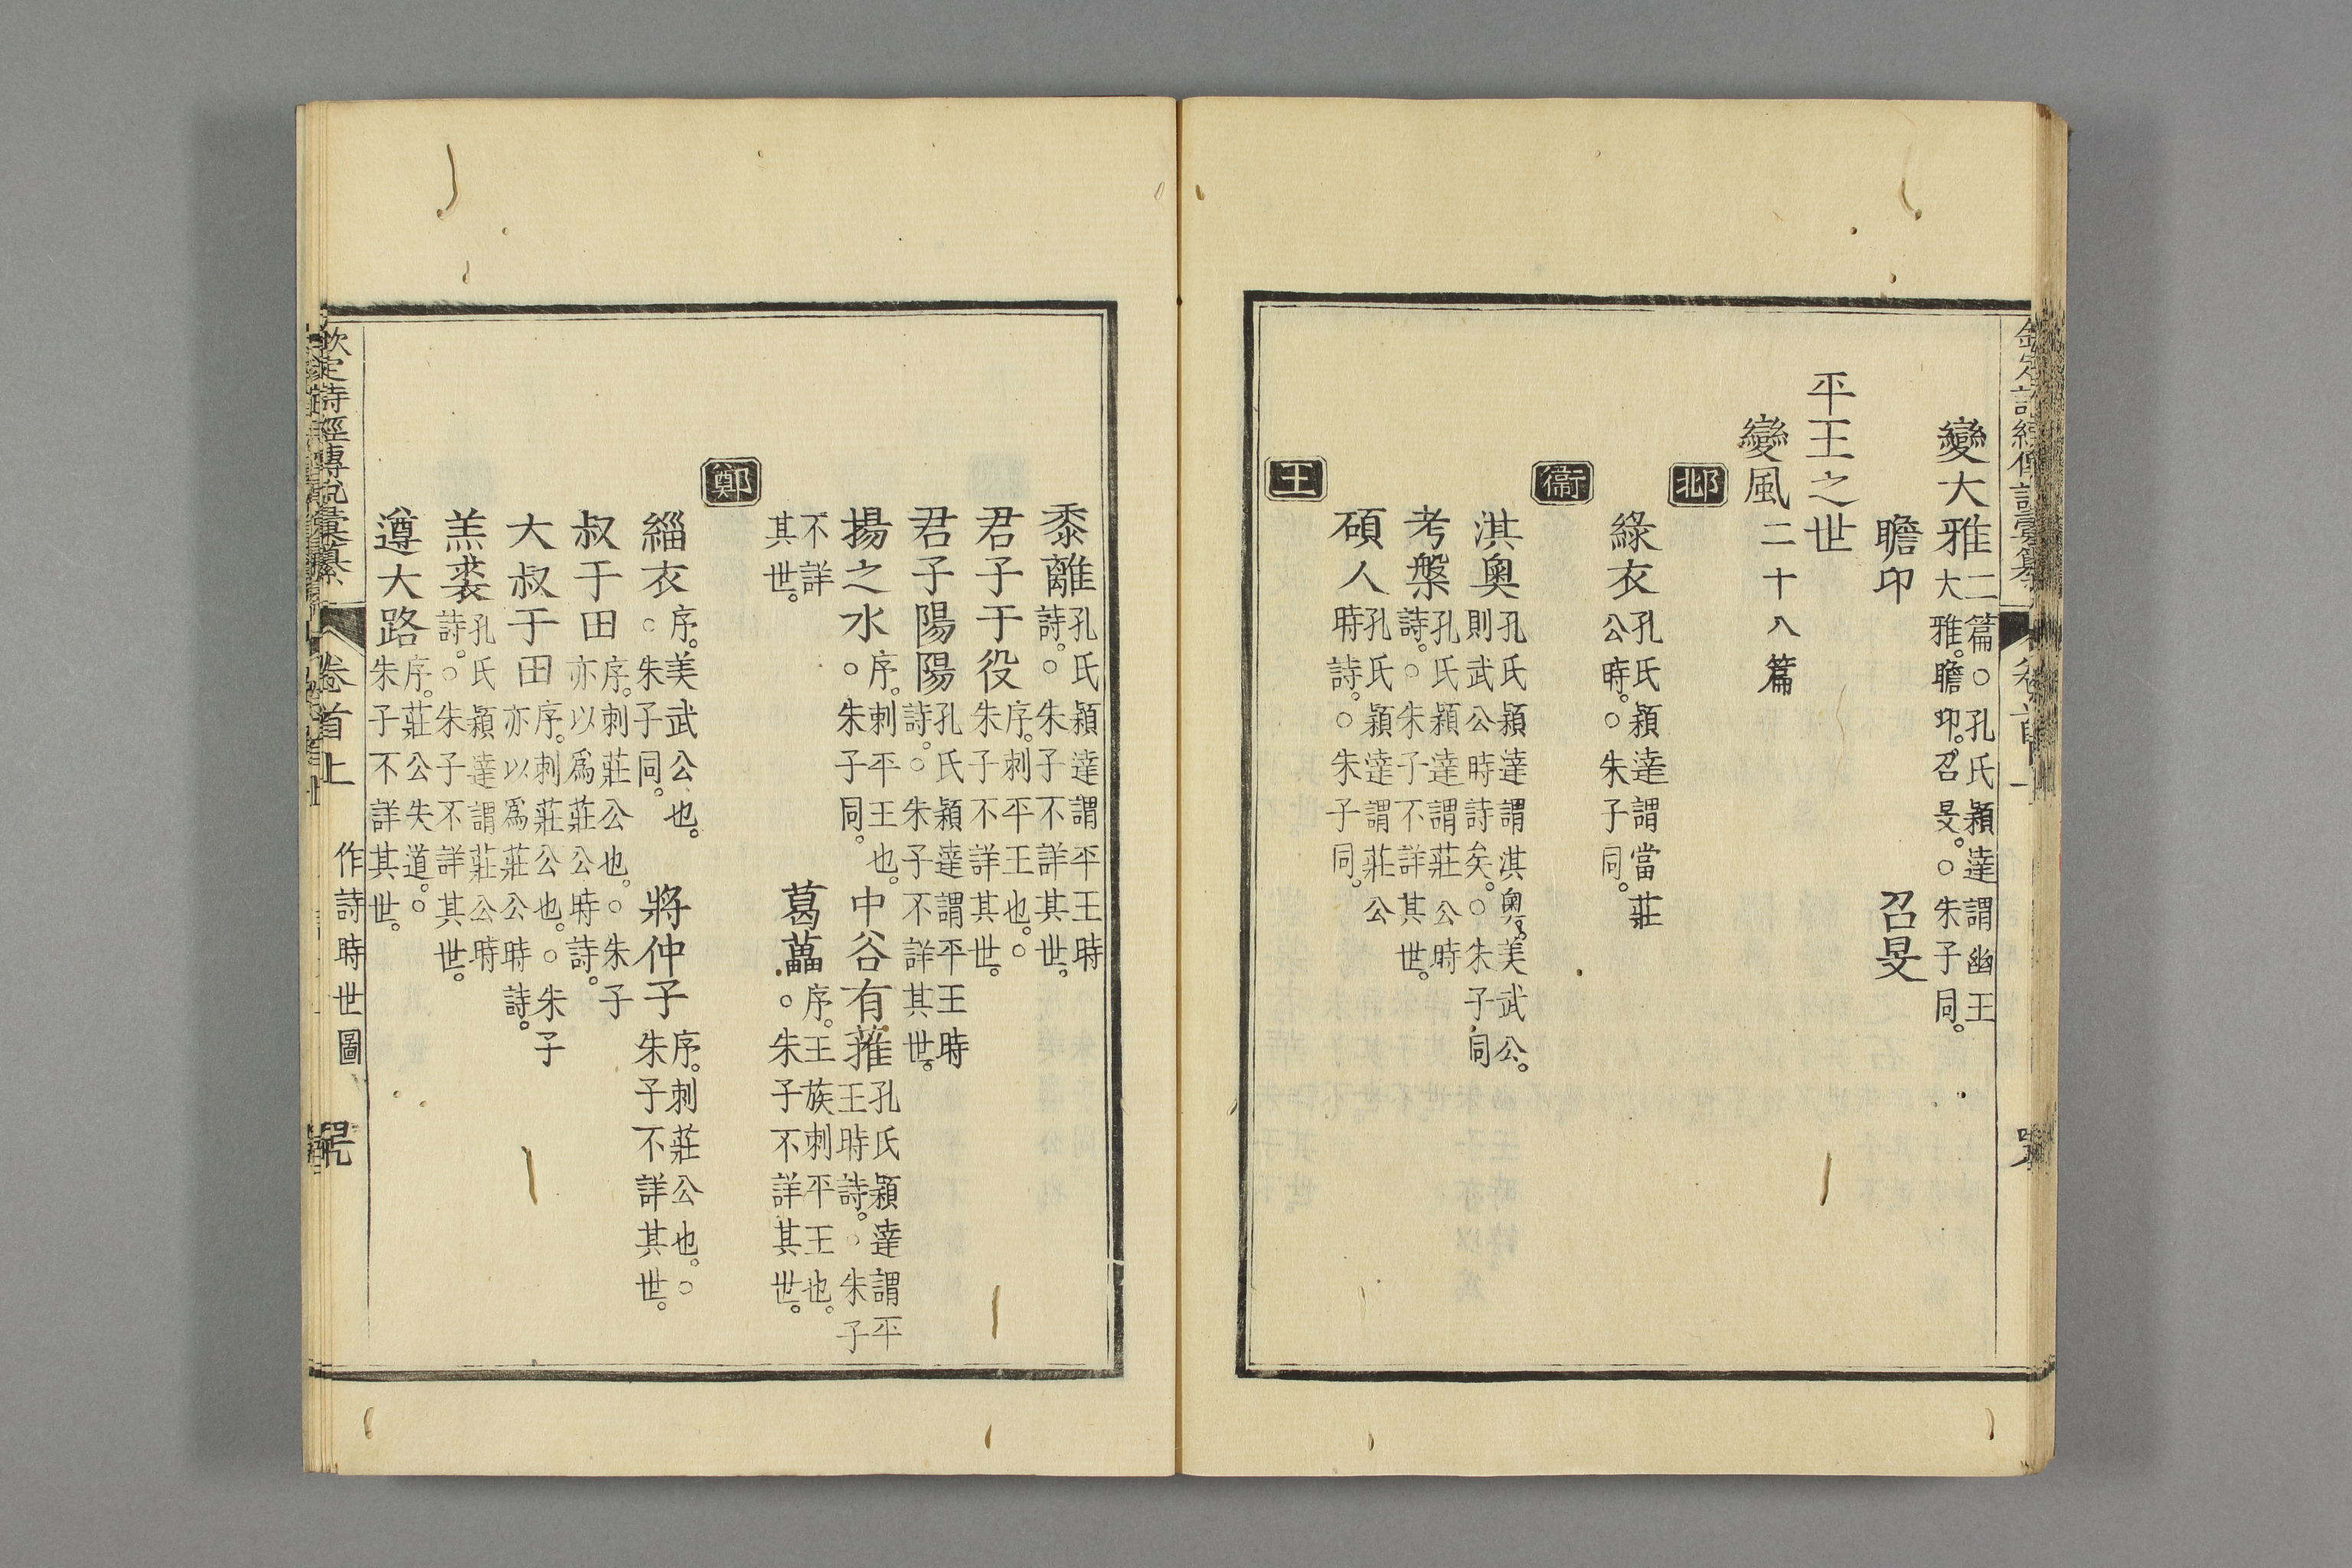 變大雅二篇。○孔氏穎達謂幽王大雅。瞻卬。召旻。○朱子同。
瞻卬　召旻
平王之世
變風二十八篇
邶
綠衣孔氏穎達謂當莊公時。○朱子同。
衞
淇奧孔氏穎達謂淇奧。美武公。則武公時詩矣。○朱子同
考槃孔氏穎達謂莊公時詩。○朱子不詳其世。
碩人孔氏穎達謂莊公時詩。○朱子同。
王
黍離孔氏穎達謂平王時詩。○朱子不詳其世。
君子于役序。刺平王也。○朱子不詳其世。
君子陽陽孔氏穎達謂平王時詩。○朱子不詳其世。
揚之水序。刺平王也。○朱子同。　中谷有蓷孔氏穎達謂平王時詩。○朱子
不詳其世。　葛藟序。王族刺平王也。○朱子不詳其世。
鄭
緇衣序。美武公也。○朱子同。　將仲子序。刺莊公也。○朱子不詳其世。
叔于田序。刺莊公也。○朱子亦以爲莊公時詩。
大叔于田序。刺莊公也。○朱子亦以爲莊公時詩。
羔裘孔氏穎達謂莊公時詩。○朱子不詳其世。
遵大路序。莊公失道。○朱子不詳其世。
欽定詩經傳說彙纂　卷首上　作詩時世圖